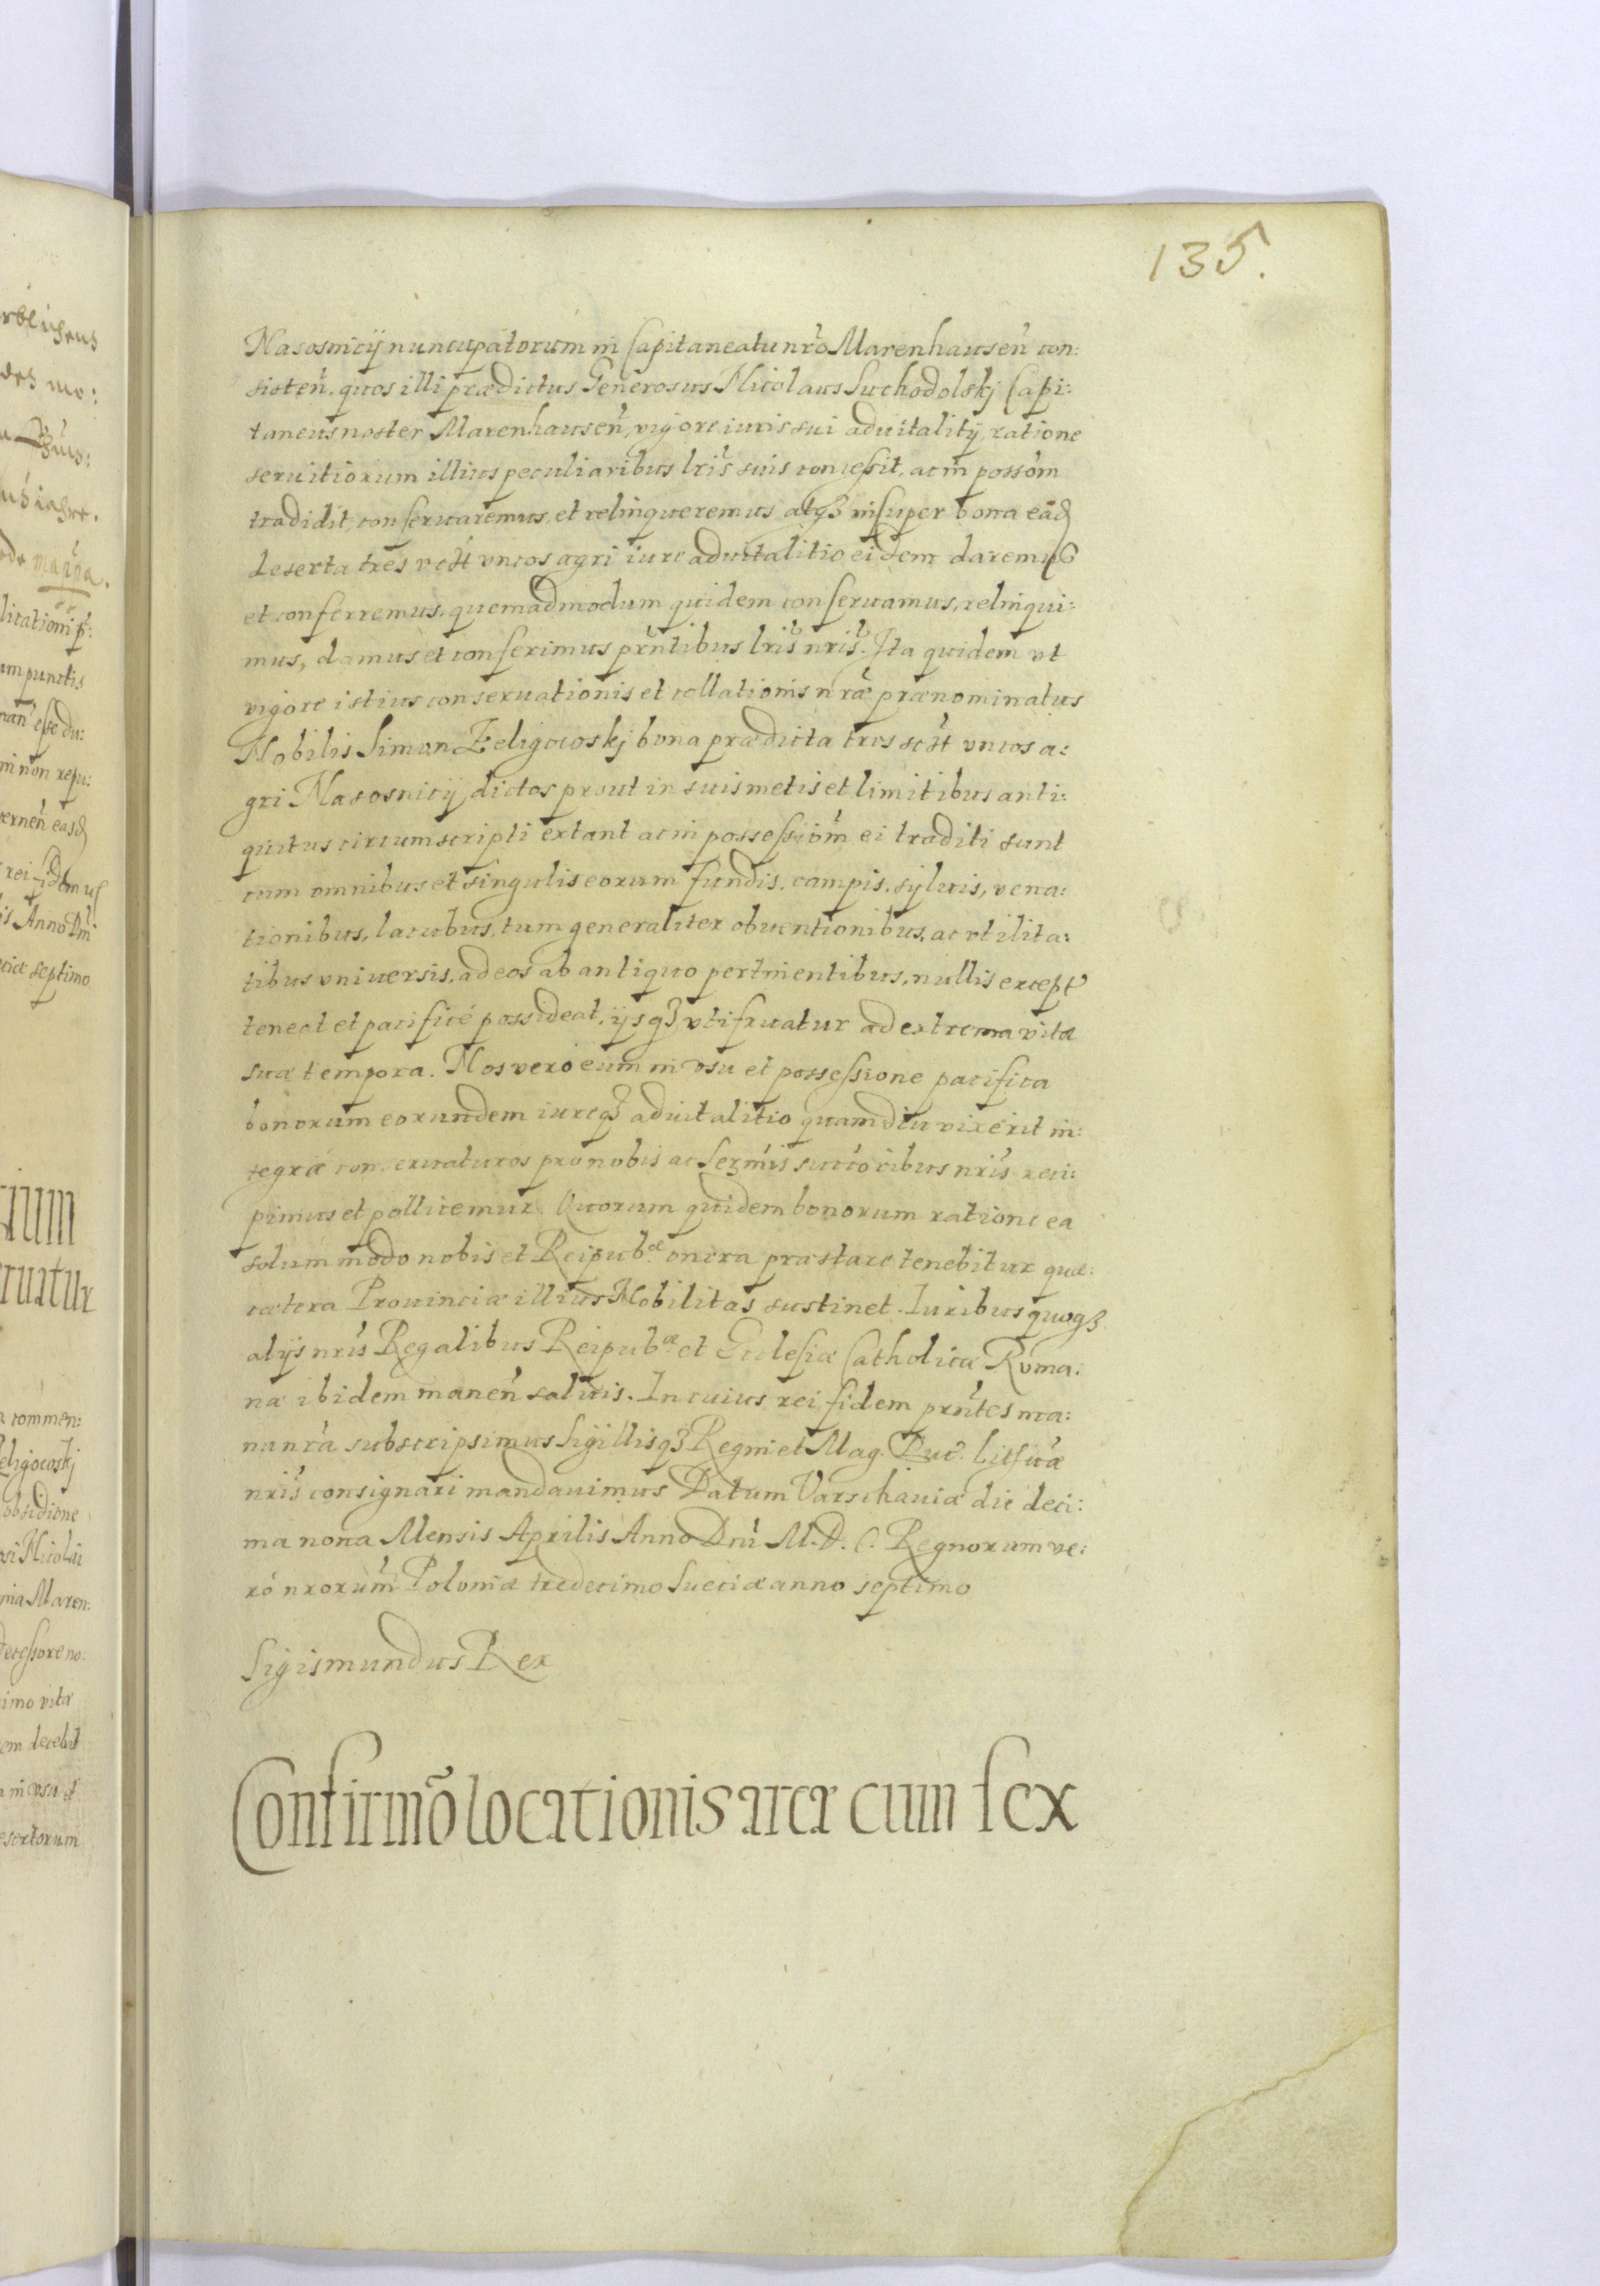 135.
Nasosnicij nuncupatorum in Capitaneatu nr̃o Marenhauseñ con:
sisteñ. quos illi prædictus Generosus Nicolaus Suchodolskj Capi:
taneus noster Marenhauseñ, vigore iuris sui aduitalitij, ratione
seruitiorum illius peculiaribus lrĩs suis concessit, ac in possõm
tradidit, conseruaremus, et relinqueremus atqȝ insuper bona eãd
deserta tres uct vncos agri iure aduitalitio eidem daremus
et conferremus. quemadmodum quidem conseruamus, relinqui:
mus, damus et conferimus prñtibus lrĩs nrĩs. Ita quidem vt
vigore istius conseruationis et collationis nr̃æ prænominatus
Nobilis Simon Zeligowskj bona prædicta tres sct vncos a:
gri Nasosnicij dictos prout in suis metis et limitibus anti:
quitus circumscripti extant ac in possessiõm ei traditi sunt
cum omnibus et singulis eorum fundis, campis, syluis, vena:
tionibus, lacubus, tum generaliter obuentionibus, ac vtilita:
tibus vniuersis, ad eos ab antiquo pertinentibus, nullis except̃
teneat et pacificé possideat, ijsqȝ vtifruatur ad extrema vitæ
suæ tempora. Nos veró eum in vsu et possessione pacifica
bonorum eorundem iureqȝ aduitalitio quamdiu vixerit in:
tegré conseruaturos pro nobis ac Serm̃is succõribus nrĩs reci:
pimus et pollicemur. Quorum quidem bonorum ratione ea
solummodo nobis et Reipubæ onera præstare tenebitur quæ:
cætera Prouinciæ illius Nobilitas sustinet. Iuribus quoqȝ
alijs nrĩs Regalibus Reipubæ et Ecclesiæ Catholicæ Roma:
næ ibidem maneñ saluis. In cuius rei fidem prñtes ma:
nu nr̃a subscripsimus Sigillisqȝ Regni et Mag. Duc. Lithuã
nrĩs consignari mandauimus Datum Varschauiæ die deci:
ma nona Mensis Aprilis Anno Dnĩ M.D.C. Regnorum ve:
ró nrorum̃ Poloniæ tredecimo Sueciæ anno septimo
Sigismundus Rex
Confirmõ locationis areæ cum sex